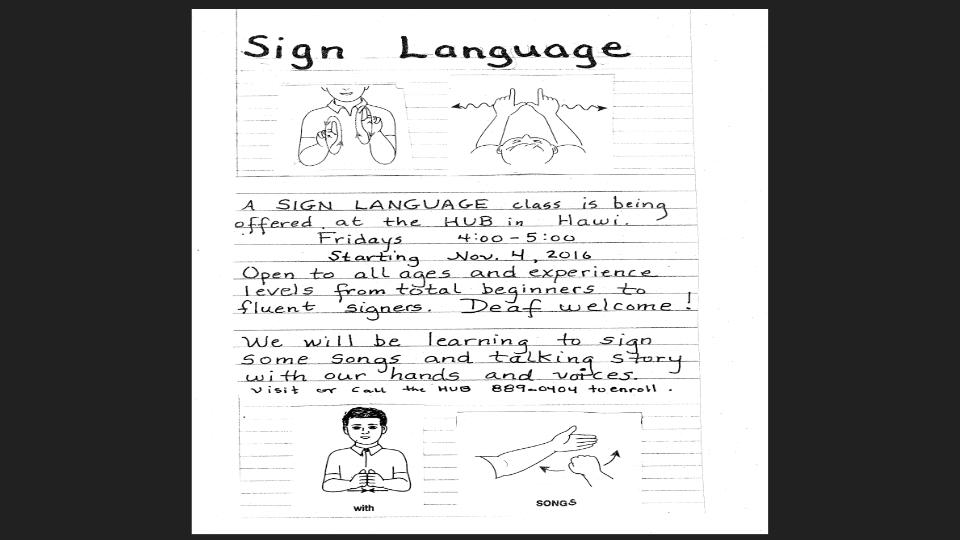 Sign Language
A SIGN LANGUAGE class is being
offered at the HUB in Hawi.
Fridays 4:00 - 5:00
Starting Nov. 4, 2016
Open to all ages and experience
levels from total beginners to
fluent signers. Deaf welcome!
We will be learning to sign
some songs and talking story
with our hands and voices.
Visit or call the HUB 889-0404 to enroll.
with
SONGS